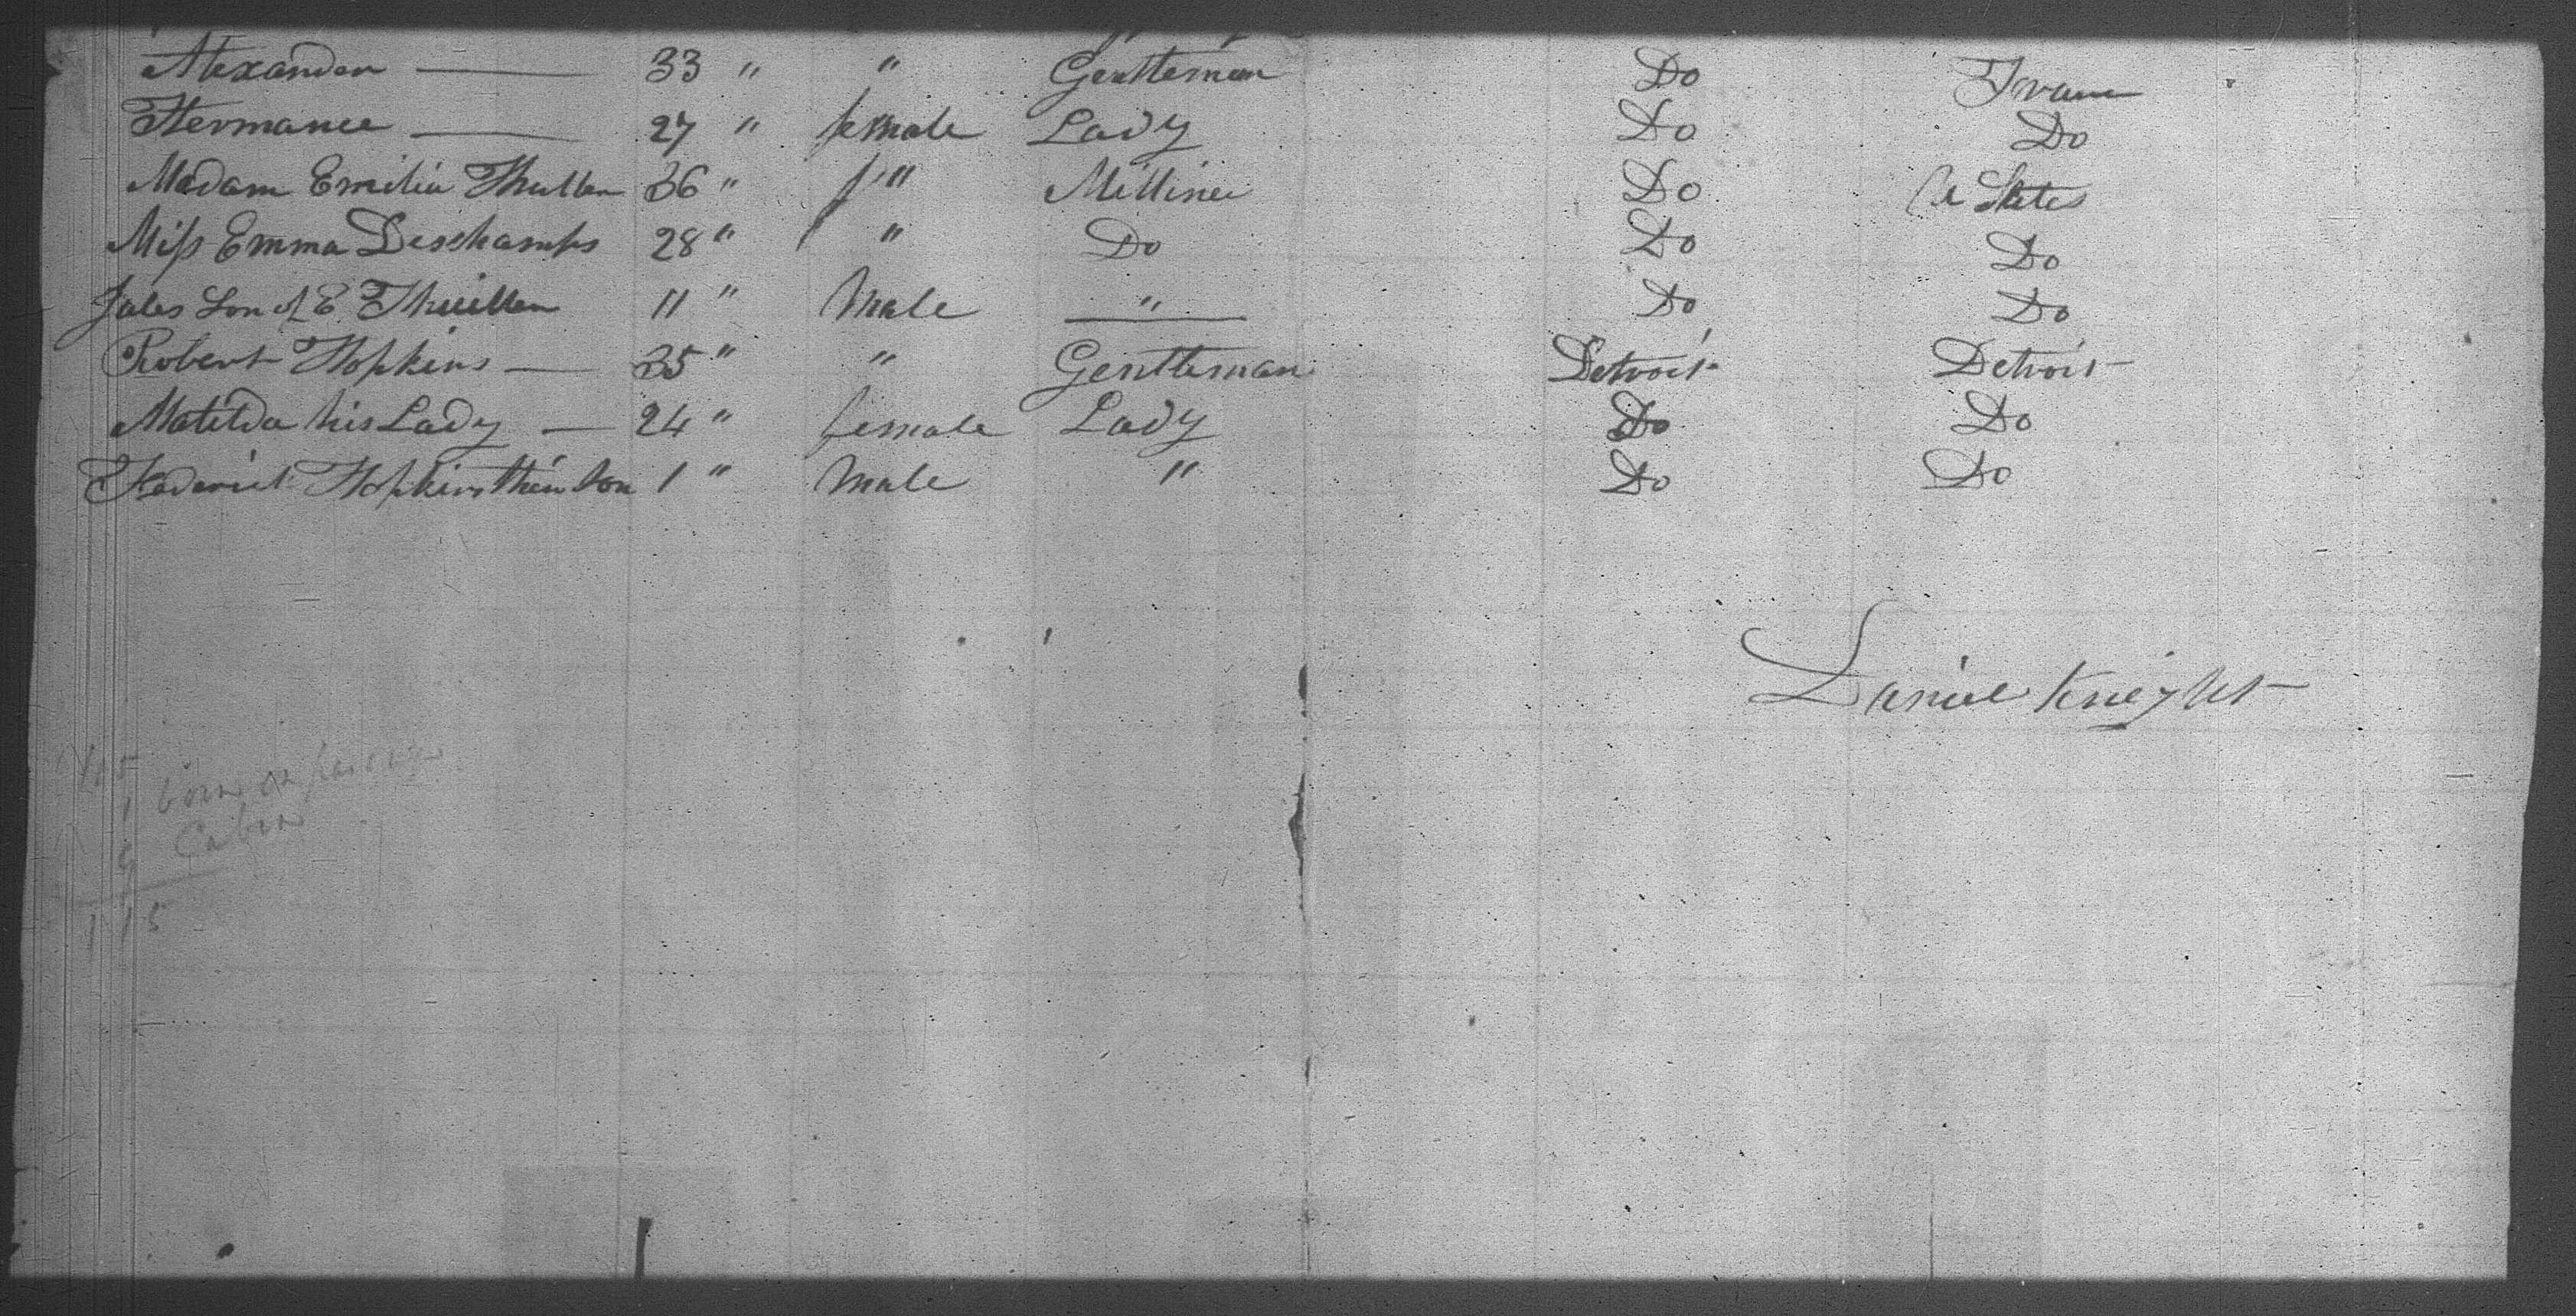 Alexander — 33 " " Gentleman Do France
Hermance — 27 " female Lady Do Do
Madam Emilia Thuillen 36 " f " Milliner Do U States
Miss Emma Deschamps 28 " " Do Do Do
Jules Son of E. Thuillen 11 " Male " Do Do
Robert Hopkins — 35 " " Gentleman Detroit Detroit
Matilda his Lady — 24 " female Lady Do Do
Frederick Hopkins their Son 1 " Male " Do Do
Daniel Knight
1 born on
9 Cabin
115